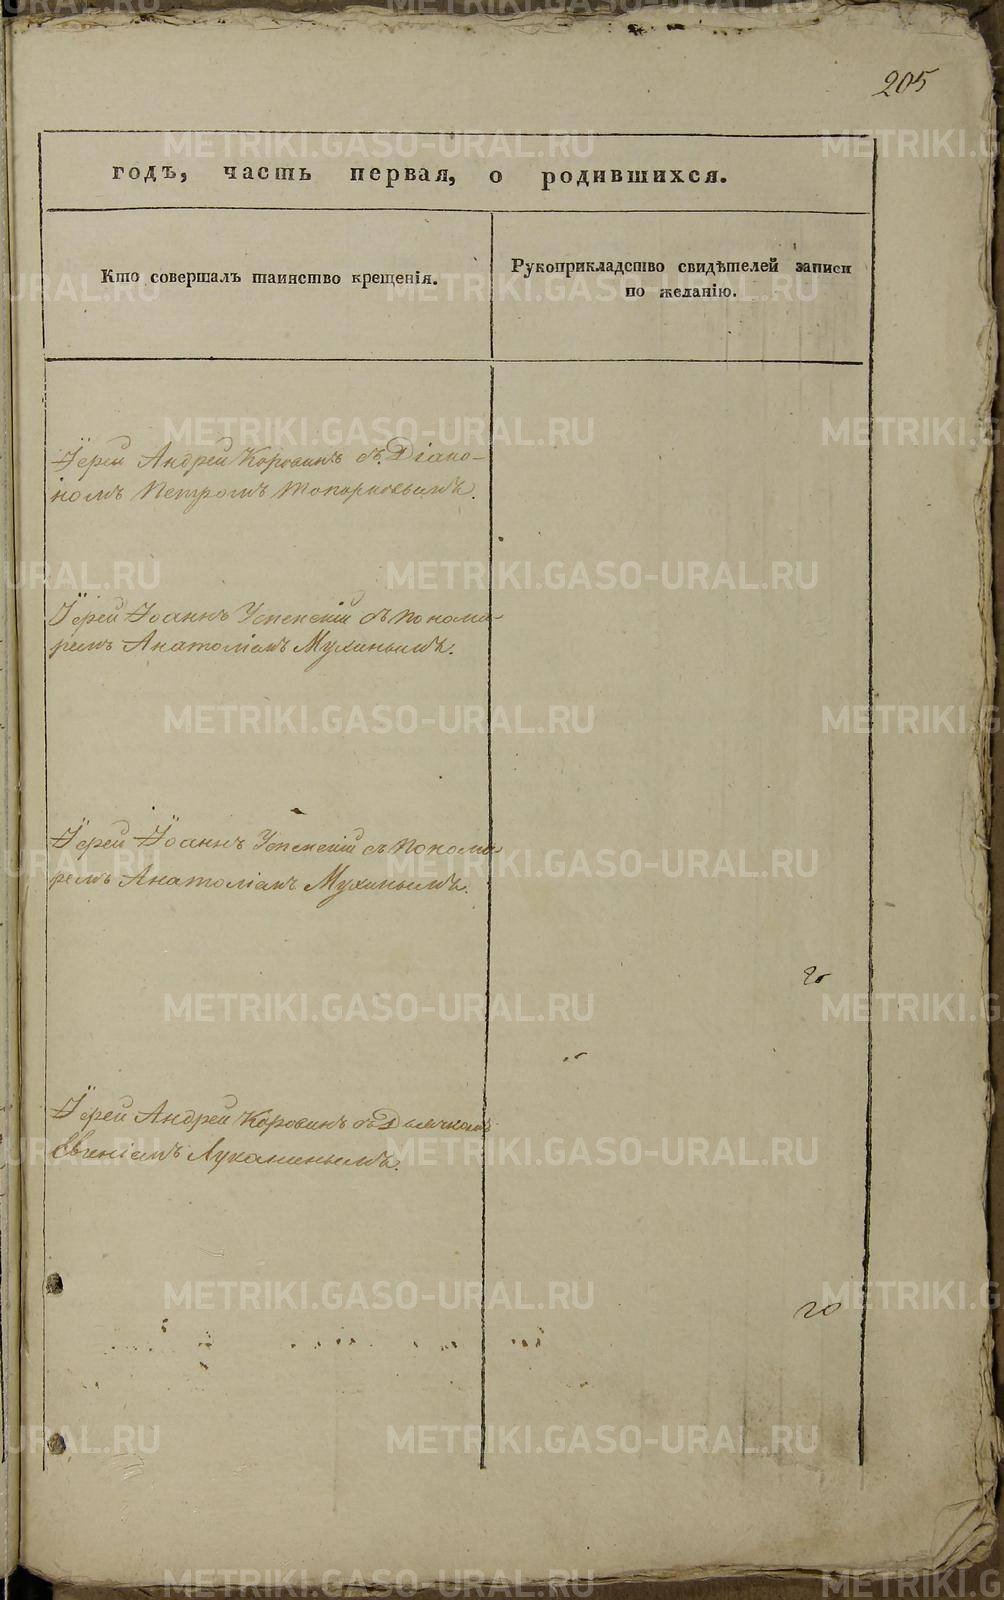 205
годъ, часть первая, о родившихся.
Кто совершалъ таинство крещенія.
Рукоприкладство свидѣтелей записи
по желанію.
Іерей Андрей Коровинъ съ Діако-
номъ Петромъ Топорковымъ.
Іерей Іоаннъ Успенскій съ понома-
ремъ Анатоліемъ Мухинымъ.
Іерей Іоаннъ Успенскій съ понома-
ремъ Анатоліемъ Мухинымъ.
Іерей Андрей Коровинъ съ Дьячкомъ
Евгеніемъ Луканинымъ.
METRIKI.GASO-URAL.RU